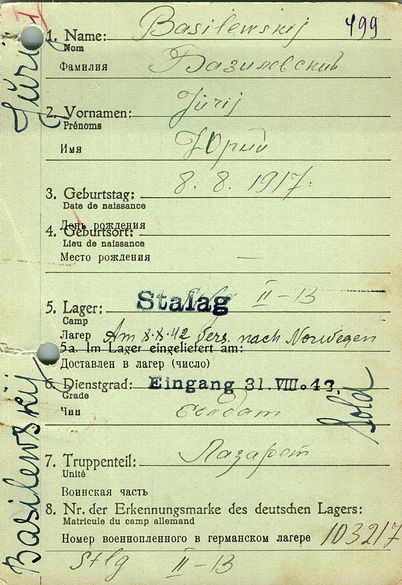 199
1. Name: Basilewskij
Nom
Фамилия Базилевский
2. Vornamen: Jürij
Prénoms
Имя Юрий
3. Geburtstag: 8. 8. 1917.
Date de naissance
День рождения
4. Geburtsort:
Lieu de naissance
Место рождения —
5. Lager: Stalag II-B
Camp
Лагер Am 8.8.42 Vers. nach Norwegen
5a. Im Lager eingeliefert am:
Доставлен в лагер (число)
6. Dienstgrad: Eingang 31. VIII. 43.
Grade
Чин солдат
Sold
7. Truppenteil: Лазарет
Unité
Воинская часть
8. Nr. der Erkennungsmarke des deutschen Lagers:
Matricule du camp allemand
Номер военнопленного в германском лагере 103217
Stlg II-B
Basilewskij Jürij